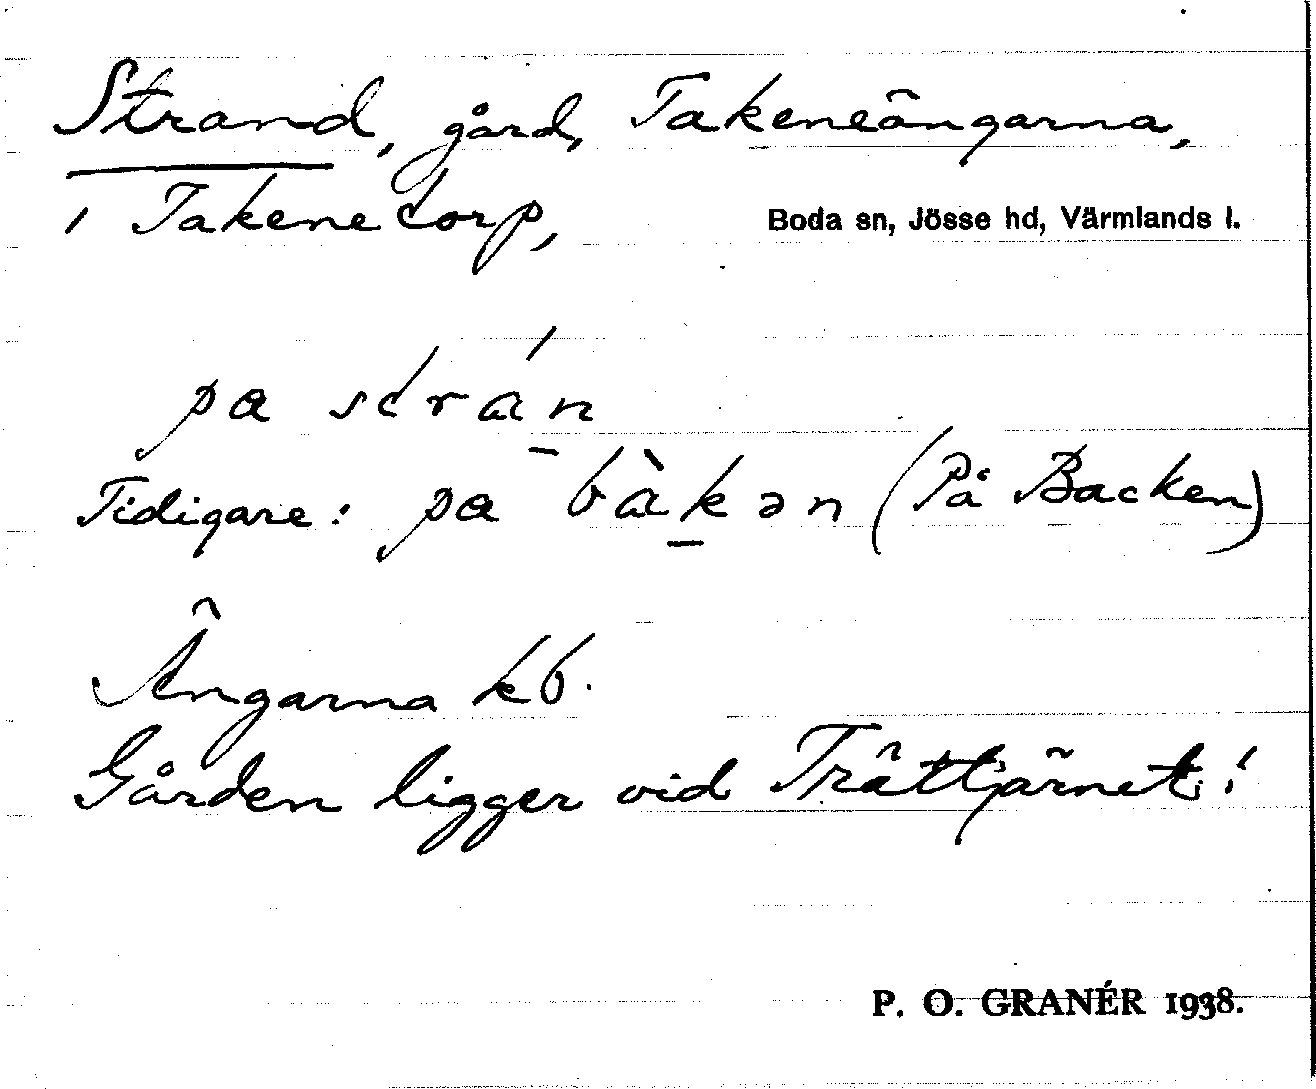 Strand, gård, Takeneängarna,
i Takenetorp, Boda sn, Jösse hd, Värmlands l.
pa strán̠
Tidigare: pa bàk̠ən (På Backen)
Ängarna kb.
Gården ligger vid Trättjärnet!
P. O. GRANÉR 1938.